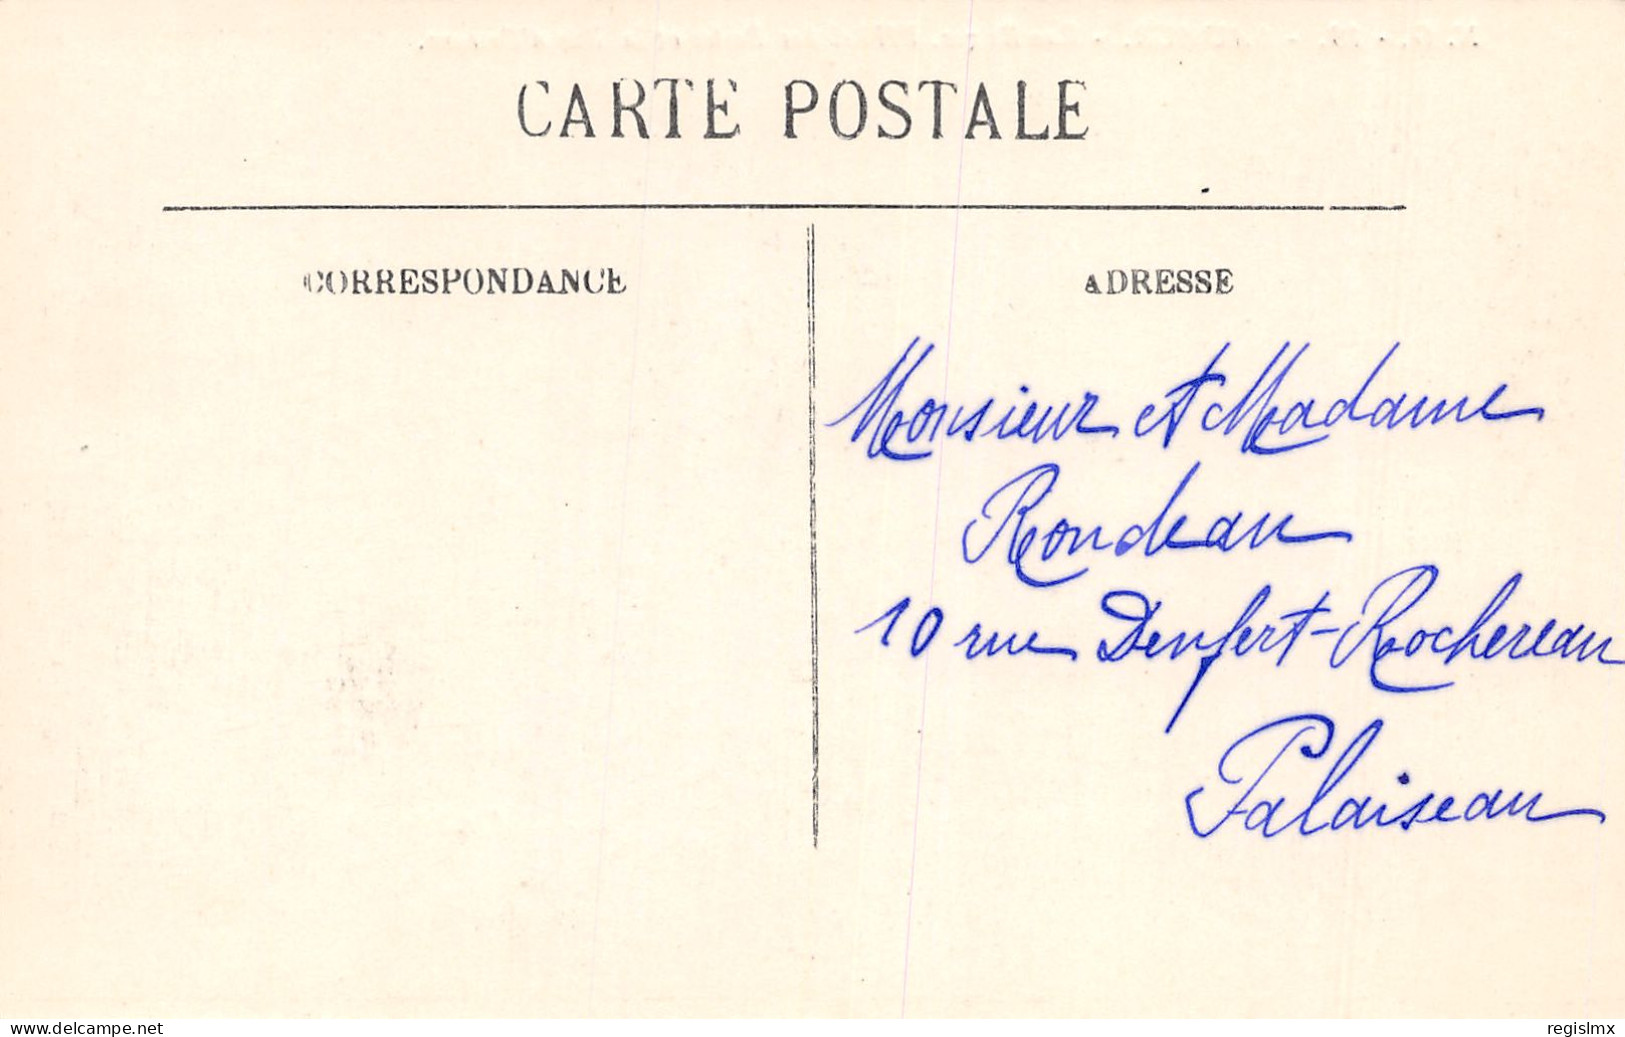 CARTE POSTALE
CORRESPONDANCE
ADRESSE
Monsieur et Madame
Rondeau
10 rue Denfert-Rochereau
Palaiseau
www.delcampe.net
regislmx